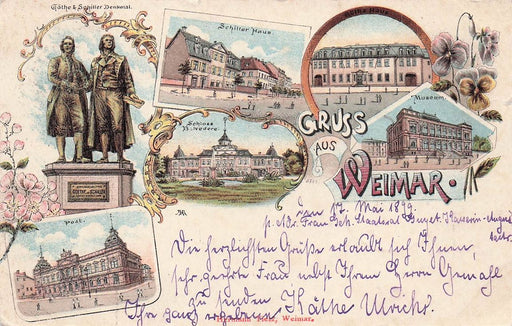 Göthe & Schiller Denkmal.
Schiller Haus.
Göthe Haus.
Museum.
Schloss
Belvedere.
GRUSS
AUS
WEIMAR.
Post.
den 17. Mai 1899.
p. Adr. Frau Geh. Staatsrat
Die herzlichsten Grüße erlaubt sich Ihnen,
sehr geehrte Frau nebst Ihrem Herrn Gemahl
zu senden Käthe Ulrichs.
Ihre ganz ergebene
Weimar.